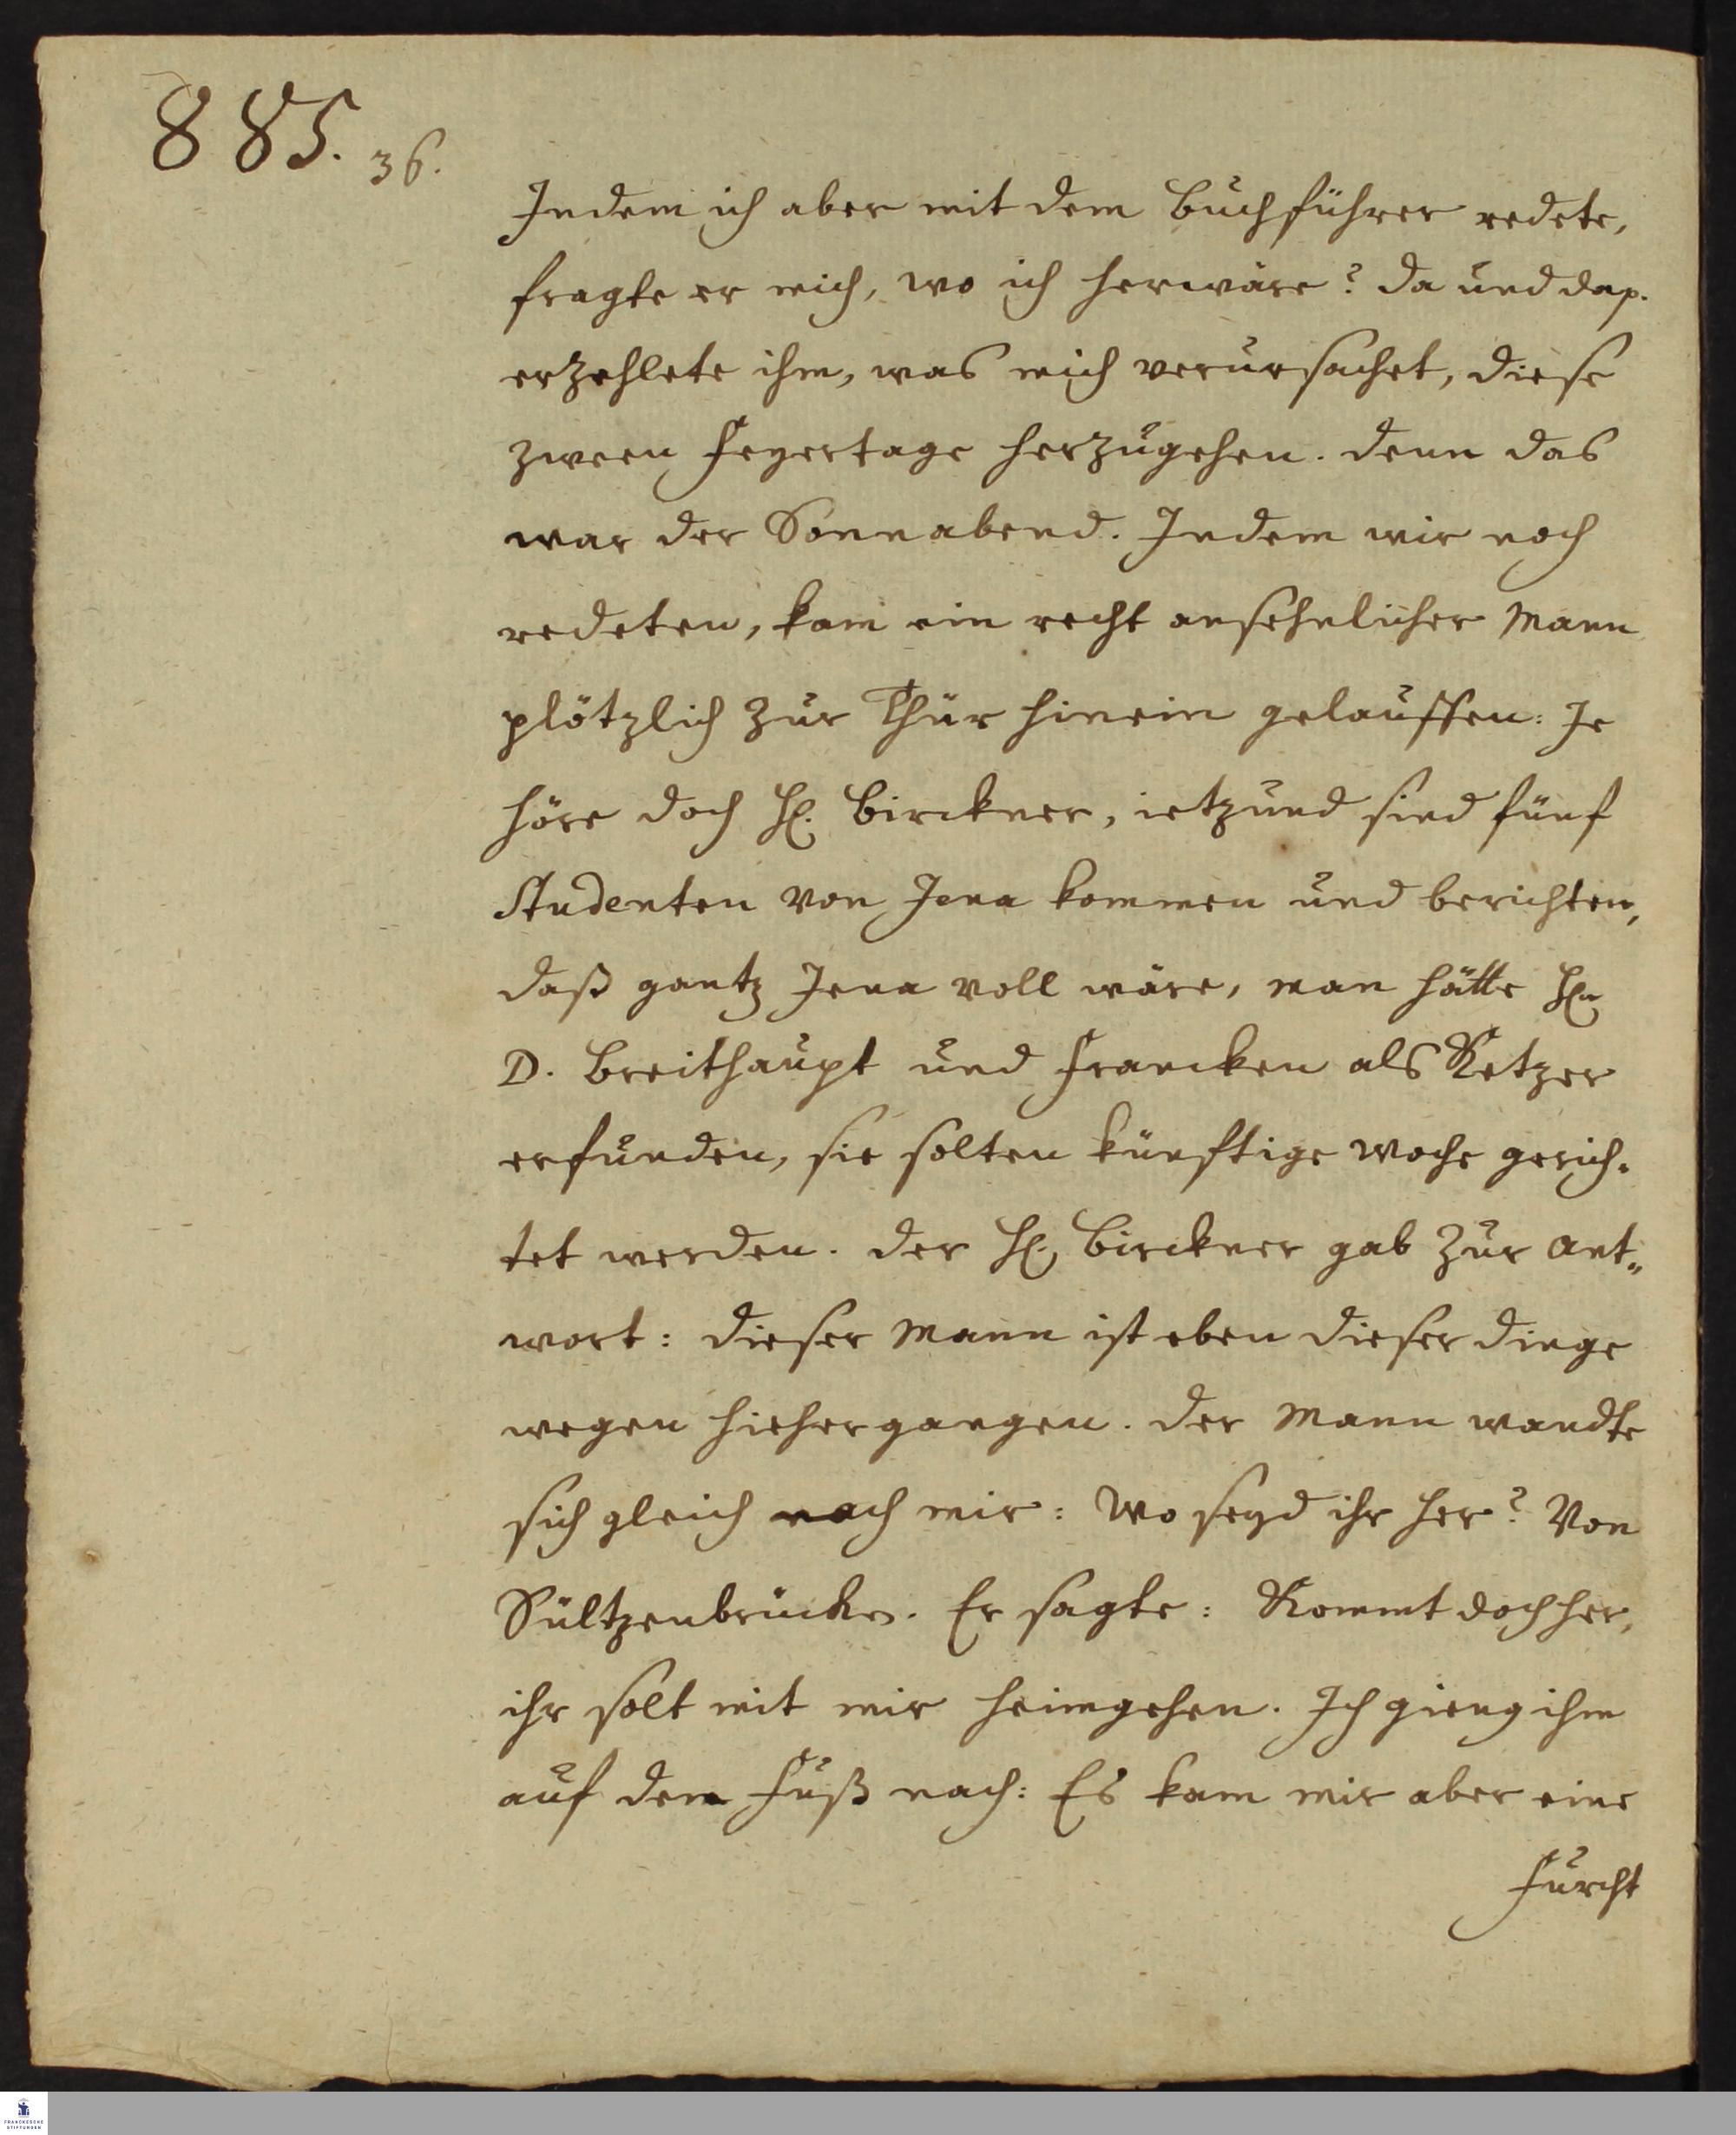 885. 36.
Indem ich aber mit dem Buchführer redete,
fragte er mich, wo ich herwäre? da und da p.
erzehlete ihm, was mich verursachet, diese
zween Feyertage herzugehen. denn das
war der Sonnabend. Indem wir noch
redeten, kam ein recht ansehnlicher Mann
plötzlich zur Thür hinein gelauffen: Je
höre doch H. Birckner, ietzund sind fünf
Studenten von Jena kommen und berichten,
daß gantz Jena voll wäre, man hätte Hn
D. Breithaupt und Francken als Ketzer
erfunden, sie solten künftige Woche gerich-
tet werden. der H. Birckner gab zur Ant-
wort: dieser Mann ist eben dieser dinge
wegen hiehergangen. der Mann wandte
sich gleich nach mir: Wo seyd ihr her? Von
Sültzenbrücken. Er sagte: Kommt doch her,
ihr solt mit mir heimgehen. Ich gieng ihm
auf dem Fuß nach: Es kam mir aber eine
Furcht
FRANCKESCHE
STIFTUNGEN